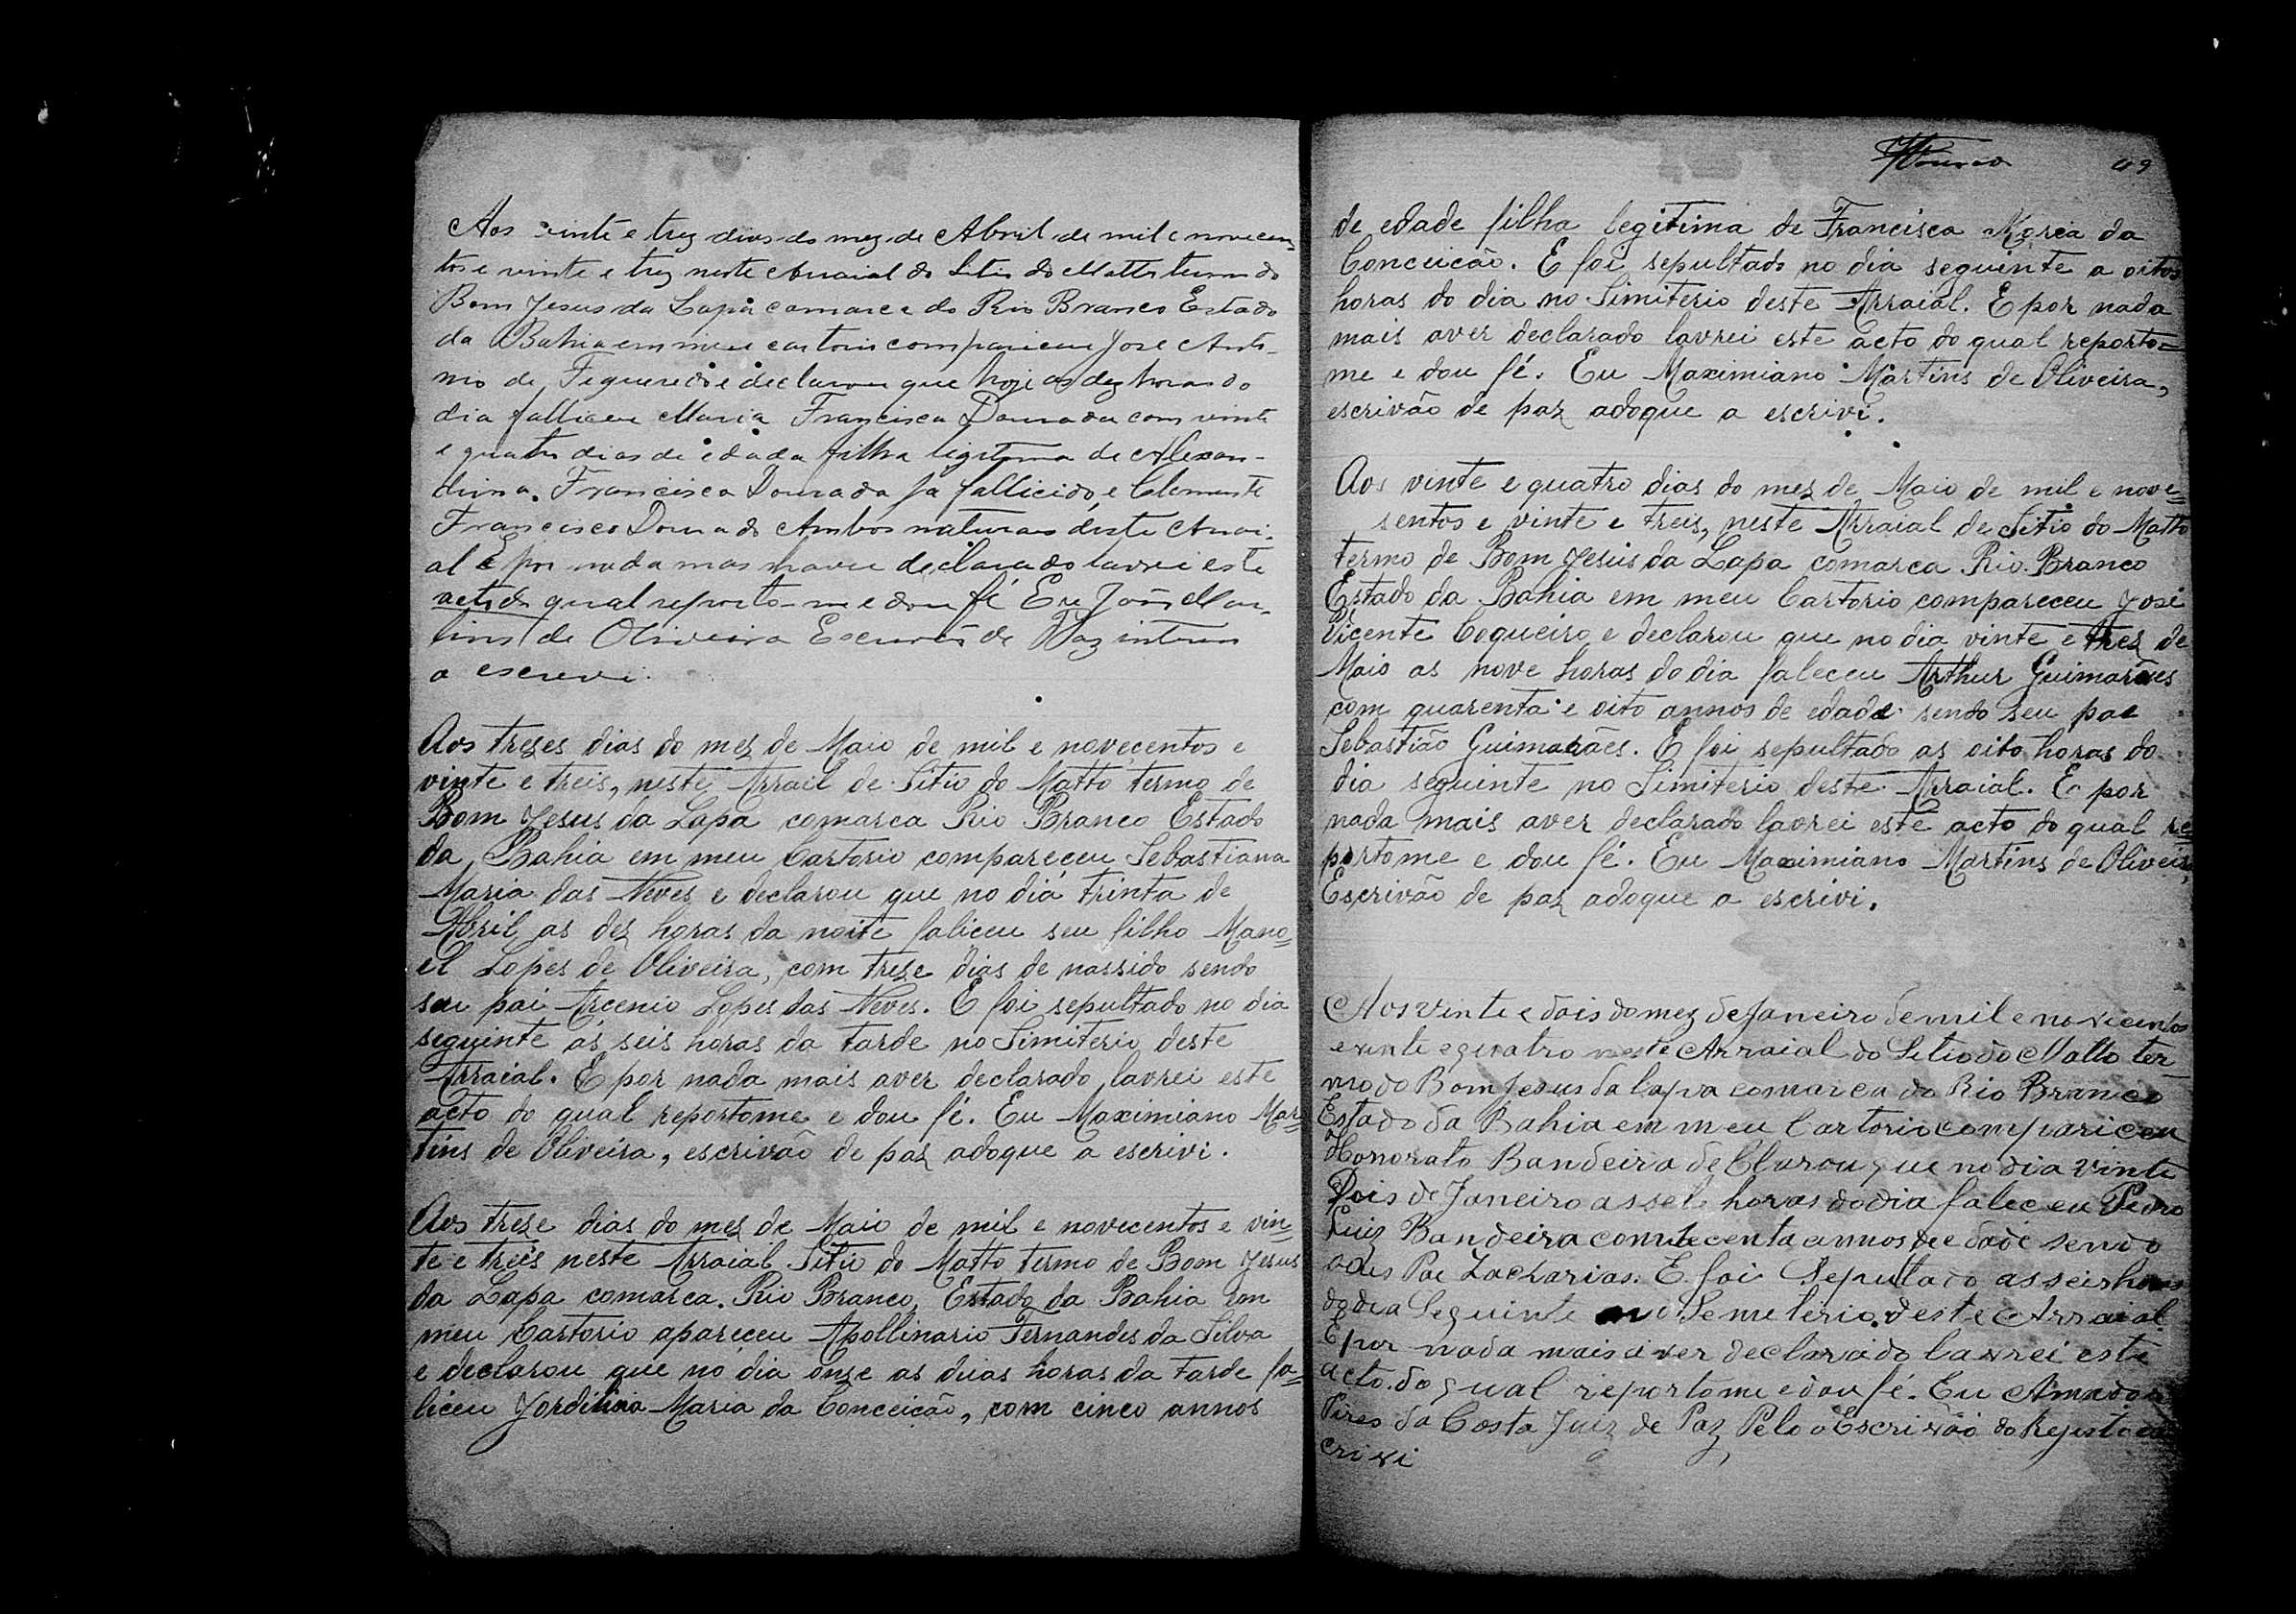 Aos vinte e trez dias do mez de Abril de mil e novecen-
tos e vinte e trez neste Arraial do Sitio do Matto termo do
Bom Jesus da Lapa comarca do Rio Branco Estado
da Bahia em meu cartorio compareceu José Anto-
nio de Figueredo e declarou que hoje as dez horas do
dia falliceu Maria Francisca Dourada com vinte
e quatro dias de idade filha ligitima de Alexan-
drina Francisca Dourada já fallicido e Clemente
Francisco Dourado Ambos naturaes deste Arrai-
al E por nada mas haver declarado lavrei este
acto do qual reporto-me e dou fé Eu João Mar-
tins de Oliveira Escrivão de Paz interino
o escrevi.
Aos treses dias do mez de Maio de mil e novecentos e
vinte e treis, neste Arrail de Sitio do Matto termo de
Bom Jesus da Lapa comarca Rio Branco Estado
da Bahia em meu Cartorio compareceu Sebastiana
Maria das Neves e declarou que no dia trinta de
Abril as dez horas da noite faliceu seu filho Mano=
el Lopes de Oliveira, com trese dias de nassido sendo
seu pai Arcenio Lopes das Neves. E foi sepultado no dia
seguinte ás seis horas da tarde no Simiterio deste
Arraial. E por nada mais aver declarado lavrei este
acto do qual reportome e dou fé. Eu Maximiano Mar=
tins de Oliveira, escrivão de paz adoque a escrivi.
Aos treze dias do mez de Maio de mil e novecentos e vin=
te e treis neste Arraial Sitio do Matto termo de Bom Jesus
da Lapa comarca. Rio Branco, Estado da Bahia em
meu Cartorio apareceu Apollinario Fernandes da Silva
e declarou que no dia onse as duas horas da tarde fa=
liceu Maria da Conceicão, com cinco annos
49
de edade filha legitima de Francisca Maria da
Conceicão. E foi sepultado no dia seguinte a oitos
horas do dia no Simiterio deste Arraial. E por nada
mais aver declarado lavrei este acto do qual reporto=
me e dou fé. Eu Maximiano Martins de Oliveira,
escrivão de paz adoque a escrivi.
Aos vinte e quatro dias do mez de Maio de mil e nove=
sentos e vinte e treis, neste Arraial de Sitio do Matto
termo de Bom Jesus da Lapa comarca Rio Branco
Estado da Bahia em meu Cartorio compareceu José
Vicente Coqueiro e declarou que no dia vinte e trez de
Maio as nove horas do dia faleceu Arthur Guimarães
com quarenta e oito annos de edade sendo seu pae
Sebastião Guimarães. E foi sepultado as oito horas do
dia seguinte no Simiterio deste Arraial. E por
nada mais aver declarado lavrei este acto do qual re=
portome e dou fé. Eu Maximiano Martins de Oliveira,
Escrivão de paz adoque a escrivi.
Aos vinte e dois do mez de Janeiro de mil e novicentos
e vinte e quatro neste Arraial do Sitio do Matto ter
mo do Bom Jesus da lapa comarca do Rio Branco
Estado da Bahia em meu Cartorio compariceu
Honorato Bandeira deClarou que no dia vinte
Dois de Janeiro as sete horas do dia faleceu Pedro
Luiz Bandeira com annos de edade sendo
Pae Zacharias. E foi Sepultado as seis horas
do dia Seguinte no Semeterio deste Arraial.
E por nada mais aver declarado lavrei este
acto do qual reportome e dou fé. Eu Amador
Pires da Costa Juiz de Paz, Pelo o Escrivão do Rejisto es
crivi